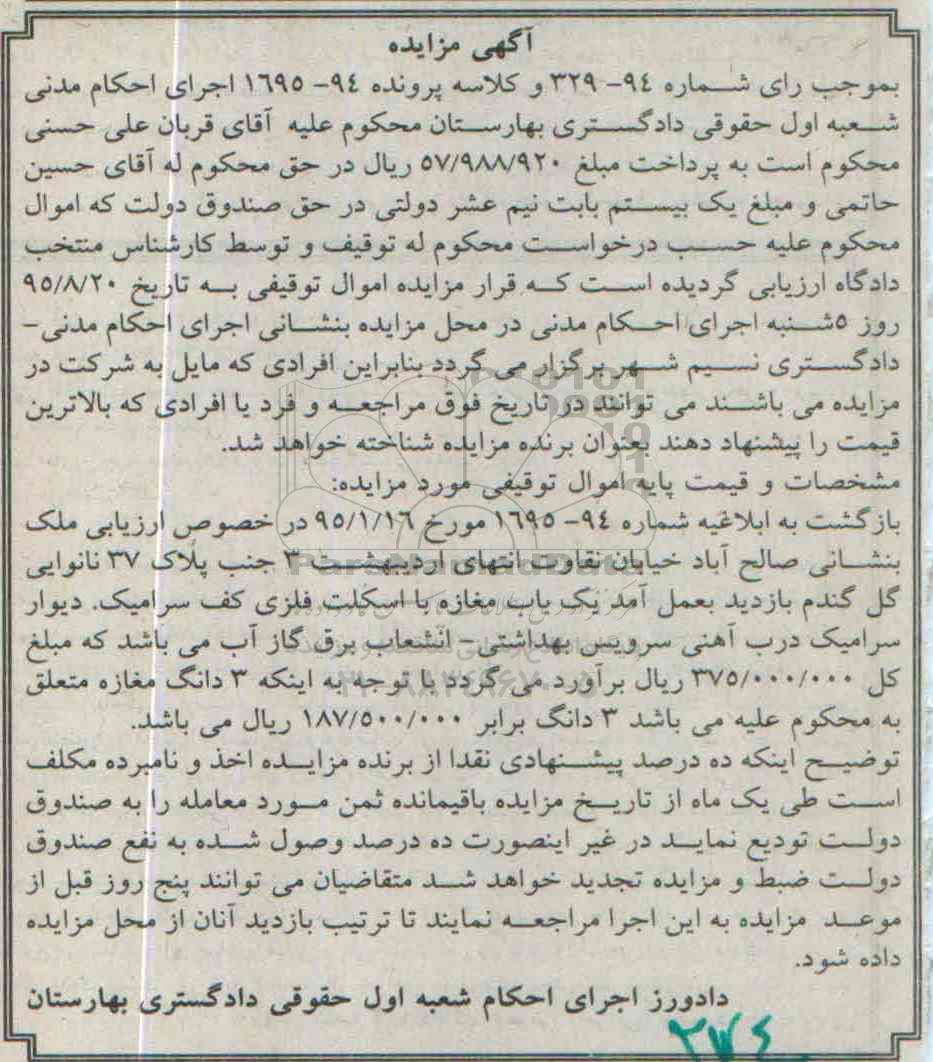 آگهی مزایده
بموجب رای شماره ٩٤- ٣٢٩ و کلاسه پرونده ٩٤- ١٦٩٥ اجرای احکام مدنی
شعبه اول حقوقی دادگستری بهارستان محکوم علیه آقای قربان علی حسنی
محکوم است به پرداخت مبلغ ٥٧/٩٨٨/٩٢٠ ریال در حق محکوم له آقای حسین
حاتمی و مبلغ یک بیستم بابت نیم عشر دولتی در حق صندوق دولت که اموال
محکوم علیه حسب درخواست محکوم له توقیف و توسط کارشناس منتخب
دادگاه ارزیابی گردیده است که قرار مزایده اموال توقیفی به تاریخ ٩٥/٨/٢٠
روز ٥شنبه اجرای احکام مدنی در محل مزایده بنشانی اجرای احکام مدنی-
دادگستری نسیم شهر برگزار می گردد بنابراین افرادی که مایل به شرکت در
مزایده می باشند می توانند در تاریخ فوق مراجعه و فرد یا افرادی که بالاترین
قیمت را پیشنهاد دهند بعنوان برنده مزایده شناخته خواهد شد.
مشخصات و قیمت پایه اموال توقیفی مورد مزایده:
بازگشت به ابلاغیه شماره ٩٤- ١٦٩٥ مورخ ٩٥/١/١٦ در خصوص ارزیابی ملک
بنشانی صالح آباد خیابان نقاوت انتهای اردیبهشت ٣ جنب پلاک ٣٧ نانوایی
گل گندم بازدید بعمل آمد یک باب مغازه با اسکلت فلزی کف سرامیک. دیوار
سرامیک درب آهنی سرویس بهداشتی - انشعاب برق گاز آب می باشد که مبلغ
کل ٣٧٥/٠٠٠/٠٠٠ ریال برآورد می گردد با توجه به اینکه ٣ دانگ مغازه متعلق
به محکوم علیه می باشد ٣ دانگ برابر ١٨٧/٥٠٠/٠٠٠ ریال می باشد.
توضیح اینکه ده درصد پیشنهادی نقدا از برنده مزایده اخذ و نامبرده مکلف
است طی یک ماه از تاریخ مزایده باقیمانده ثمن مورد معامله را به صندوق
دولت تودیع نماید در غیر اینصورت ده درصد وصول شده به نفع صندوق
دولت ضبط و مزایده تجدید خواهد شد متقاضیان می توانند پنج روز قبل از
موعد مزایده به این اجرا مراجعه نمایند تا ترتیب بازدید آنان از محل مزایده
داده شود.
دادورز اجرای احکام شعبه اول حقوقی دادگستری بهارستان